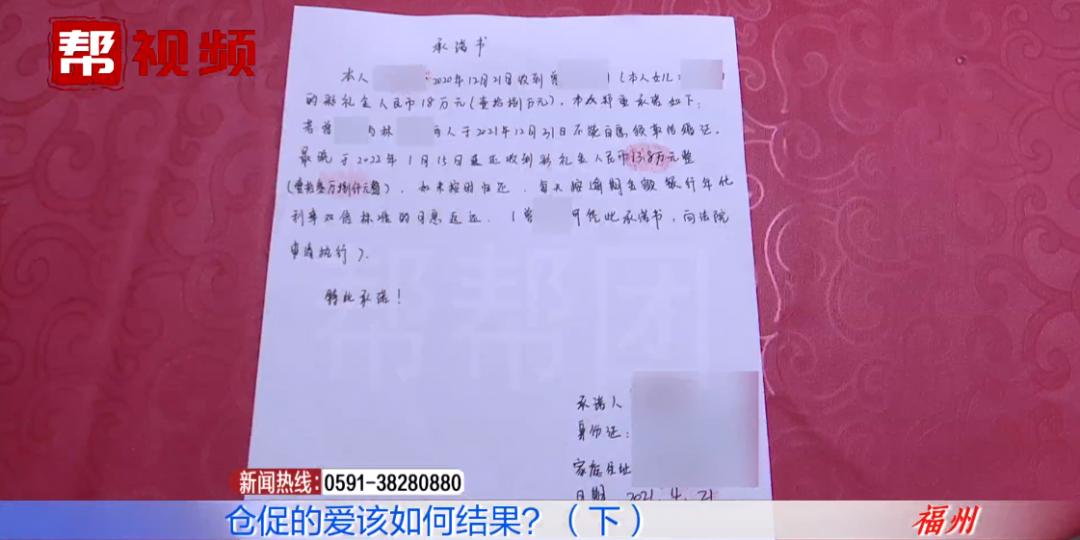 帮视频
承诺书
本人 2020年12月21日收到曾 (本人女儿:
的彩礼金人民币18万元(壹拾捌万元),本人郑重承诺如下:
若曾 与林 可人于2021年12月31日不能自愿领取结婚证,
最晚于2022年1月15日返还收到彩礼金人民币13.8万元整
(壹拾叁万捌仟元整),如未按时归还,每天按逾期金额银行年化
利率双倍标准的日息返还.(曾 可凭此承诺书,向法院
申请执行).
特此承诺!
帮帮团
承诺人
身份证:
家庭住址
日期 2021.4.21
新闻热线:0591-38280880
仓促的爱该如何结果?(下)
福州